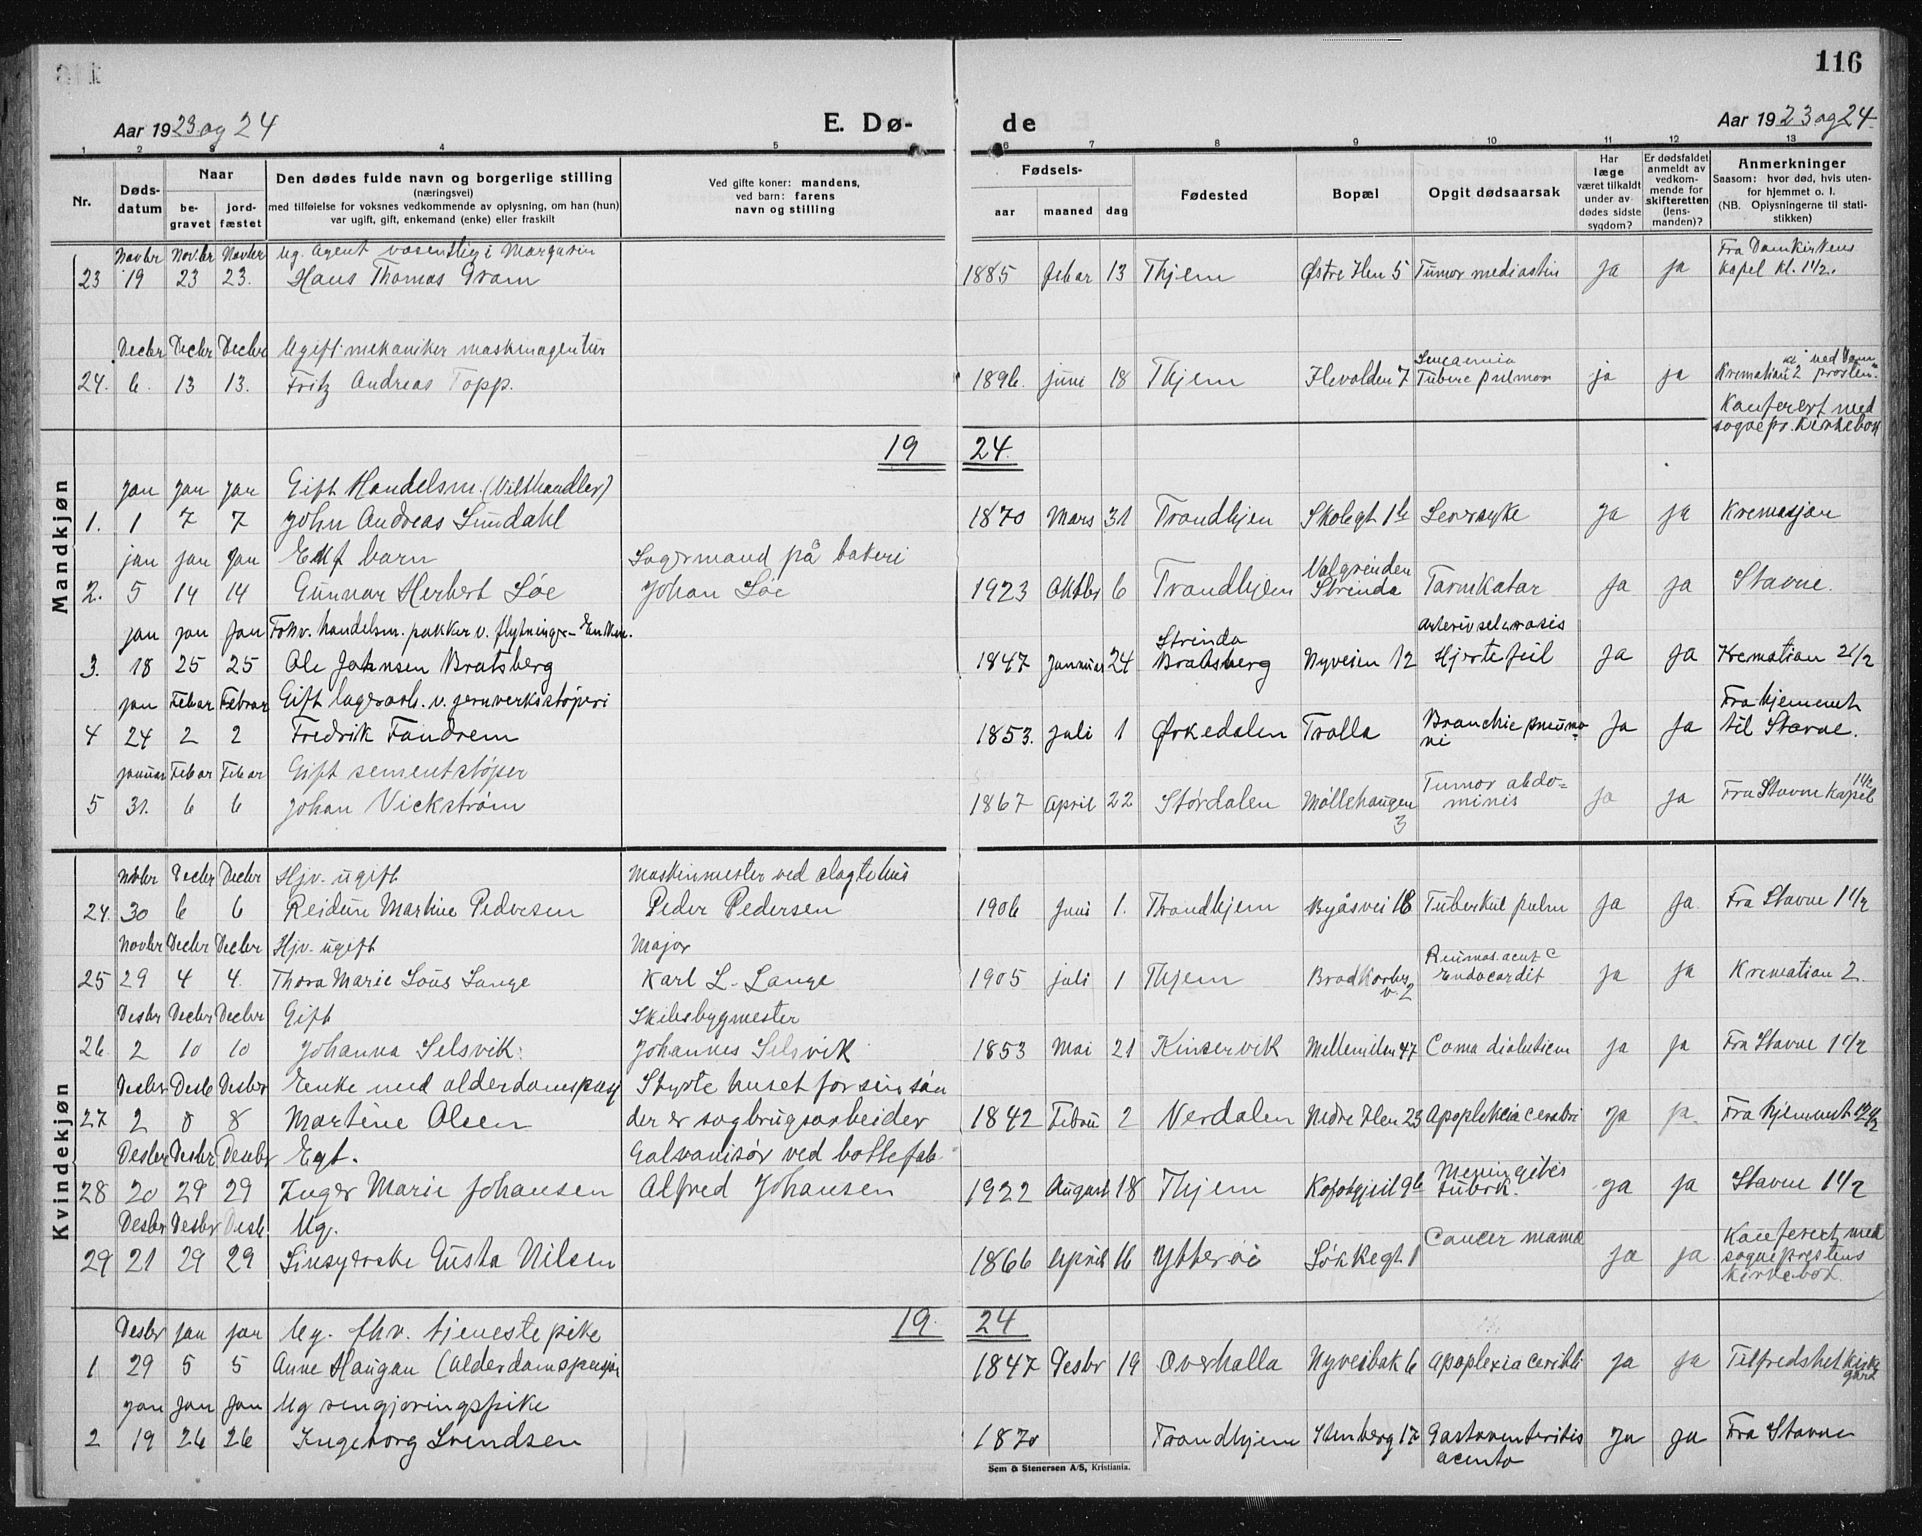 116
Aar 1923 og 24
E. Dø-
de
Aar 1923 og 24.
1 2 3 4 5 6 7 8 9 10 11 12 13
Nr.
Døds-
datum
Naar
be-
gravet
jord-
fæstet
Den dødes fulde navn og borgerlige stilling
(næringsvei)
med tilføielse for voksnes vedkommende av oplysning, om han (hun)
var ugift, gift, enkemand (enke) eller fraskilt
Ved gifte koner: mandens,
ved barn: farens
navn og stilling
Fødsels-
aar maaned dag
Fødested
Bopæl
Opgit dødsaarsak
Har
læge
været tilkaldt
under av-
dødes sidste
sygdom?
Er dødsfaldet
anmeldt av
vedkom-
mende for
skifteretten
(lens-
manden)?
Anmerkninger
Saasom: hvor død, hvis uten-
for hjemmet o. l.
(NB. Oplysningerne til stati-
stikken)
Mandkjøn
Novbr Novbr Novbr Ug. Agent væsentlig i Margarin Fra Domkirkens
23 19 23 23. Hans Thomas Gram 1885 Febar 13 Thjem Østre Ilen 5 Tumor mediastin ja ja kapel kl. 1 1/2.
Decbr Decbr Decbr Ugift mekaniker maskinagentur
24. 6. 13 13. Fritz Andreas Topp. 1896. juni 18 Thjem Ilevolden 7 Tuberc pulmon ja ja Kremation 2
Konferert med
sognepr. kirkebok
19 24.
jan jan jan Gift Handelsm. (Vilthandler)
1. 1 7 7 John Andreas Sundahl 1870 Mars 31 Trondhjem Skolegt Leversyke ja ja Kremasjon
jan jan jan Ekt barn Lagermand på bakeri Valgrinden
2. 5 14 14 Gunnar Herbert Søe Johan Søe 1923 Oktbr 6 Trondhjem Strinda Tarmkatar ja ja Stavne.
jan jan jan Fohv. handelsm. pakker v. flytninger - Enkem. Strinda
3. 18 25 25 Ole Johnsen Bratsberg 1847 januar 24 Bratsberg Nyveien 12 Hjertefeil ja ja Kremation 2 1/2
jan Febar Febrar Gift lagerarb. v. jernverkstøperi Fra hjemmet
4 24 2 2 Fredrik Fandrem 1853. juli 1 Ørkedalen Trolla Bronchie pneumo-
ni ja ja til Stavne.
januar Febar Febar Gift sementstøper Tumor abdo-
5 31. 6 6 Johan Vickstrøm 1867 April 22 Stördalen Möllehaugen
3 minis ja ja Fra Stavne kapel 1 1/2
Kvindekjøn
Novbr Decbr Decbr Hjv. ugift Maskinmester ved slagtehus
24. 30 6 6 Reidun Martine Pedersen Peder Pedersen 1906 juni 1. Trondhjem Byåsvei 18 Tuberkul pulm ja ja Fra Stavne 1 1/2
Novbr Decbr Decbr Hjv. ugift Major
25 29 4 4. Thora Marie Lous Lange Karl L. Lange 1905 juli 1 Thjem Endocardit ja ja Kremation 2.
Desbr Decbr Decbr Gift Skibsbygmester
26. 2 10 10 Johanna Selsvik Johannes Selsvik 1853 Mai 21 Kinservik Mellemilen 47 Coma diabeticum ja ja Fra Stavne 1 1/2
Desbr Desb Desbr Enke med alderdomspasj Styrte huset for sin søn
27 2 8 8 Martine Olsen der er sagbrugsarbeider 1842 Febru 2 Verdalen Nedre Ilen 23 Apoplekcia cerebri ja ja Fra hjemmet 12 1/2
Desbr Desbr Desbr Egt. Galvanisør ved bøttefab
28 20 29 29 Inger Marie Johansen Alfred Johansen 1922 August 18 Thjem Meningitis
tuberk. ja ja Stavne 1 1/2
Desbr Desbr Desb Ug. Cancer mama Konferert med
29 21 29 29 Sinsyerske Gusta Nilsen 1866 April 16 Ytterøi ja ja sogneprestens
kirkebok.
19. 24
Desbr jan jan Ug. fhv. tjenestepike
1 29 5 5 Anne Haugan (Alderdomspasjon 1847 Desbr 19 Overhalla Nyveibak 6 Apoplexia ceribli ja ja Tilfredshet kirke
gård
jan jan jan Ug rengjøringspike
2 19 26 26 Ingeborg Svendsen 1870 Trondhjem Stenberg 17 Gastroenteritis
acuta ja ja Fra Stavne
Sem & Stenersen A/S, Kristiania.